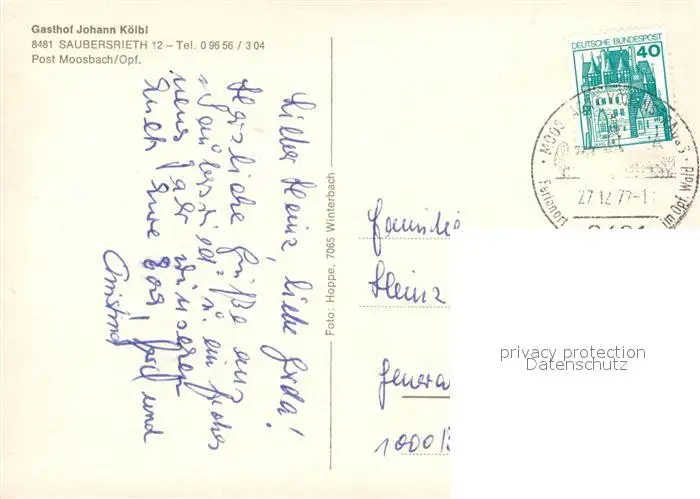 Gasthof Johann Kölbl
8481 SAUBERSRIETH 12 – Tel. 0 96 56 / 3 04
Post Moosbach/Opf.
Lieber Heinz, liebe Gerda!
Herzliche Grüße aus
Saubersrieth u. ein frohes
neues Jahr wünschen
Euch Eure
und
Christina
Foto: Hoppe, 7065 Winterbach
DEUTSCHE BUNDESPOST
40
MOOS
Ferienort
im Opf. Wald
27.12.77-1
8481
Familie
Heinz
Genera
1000/
privacy protection
Datenschutz